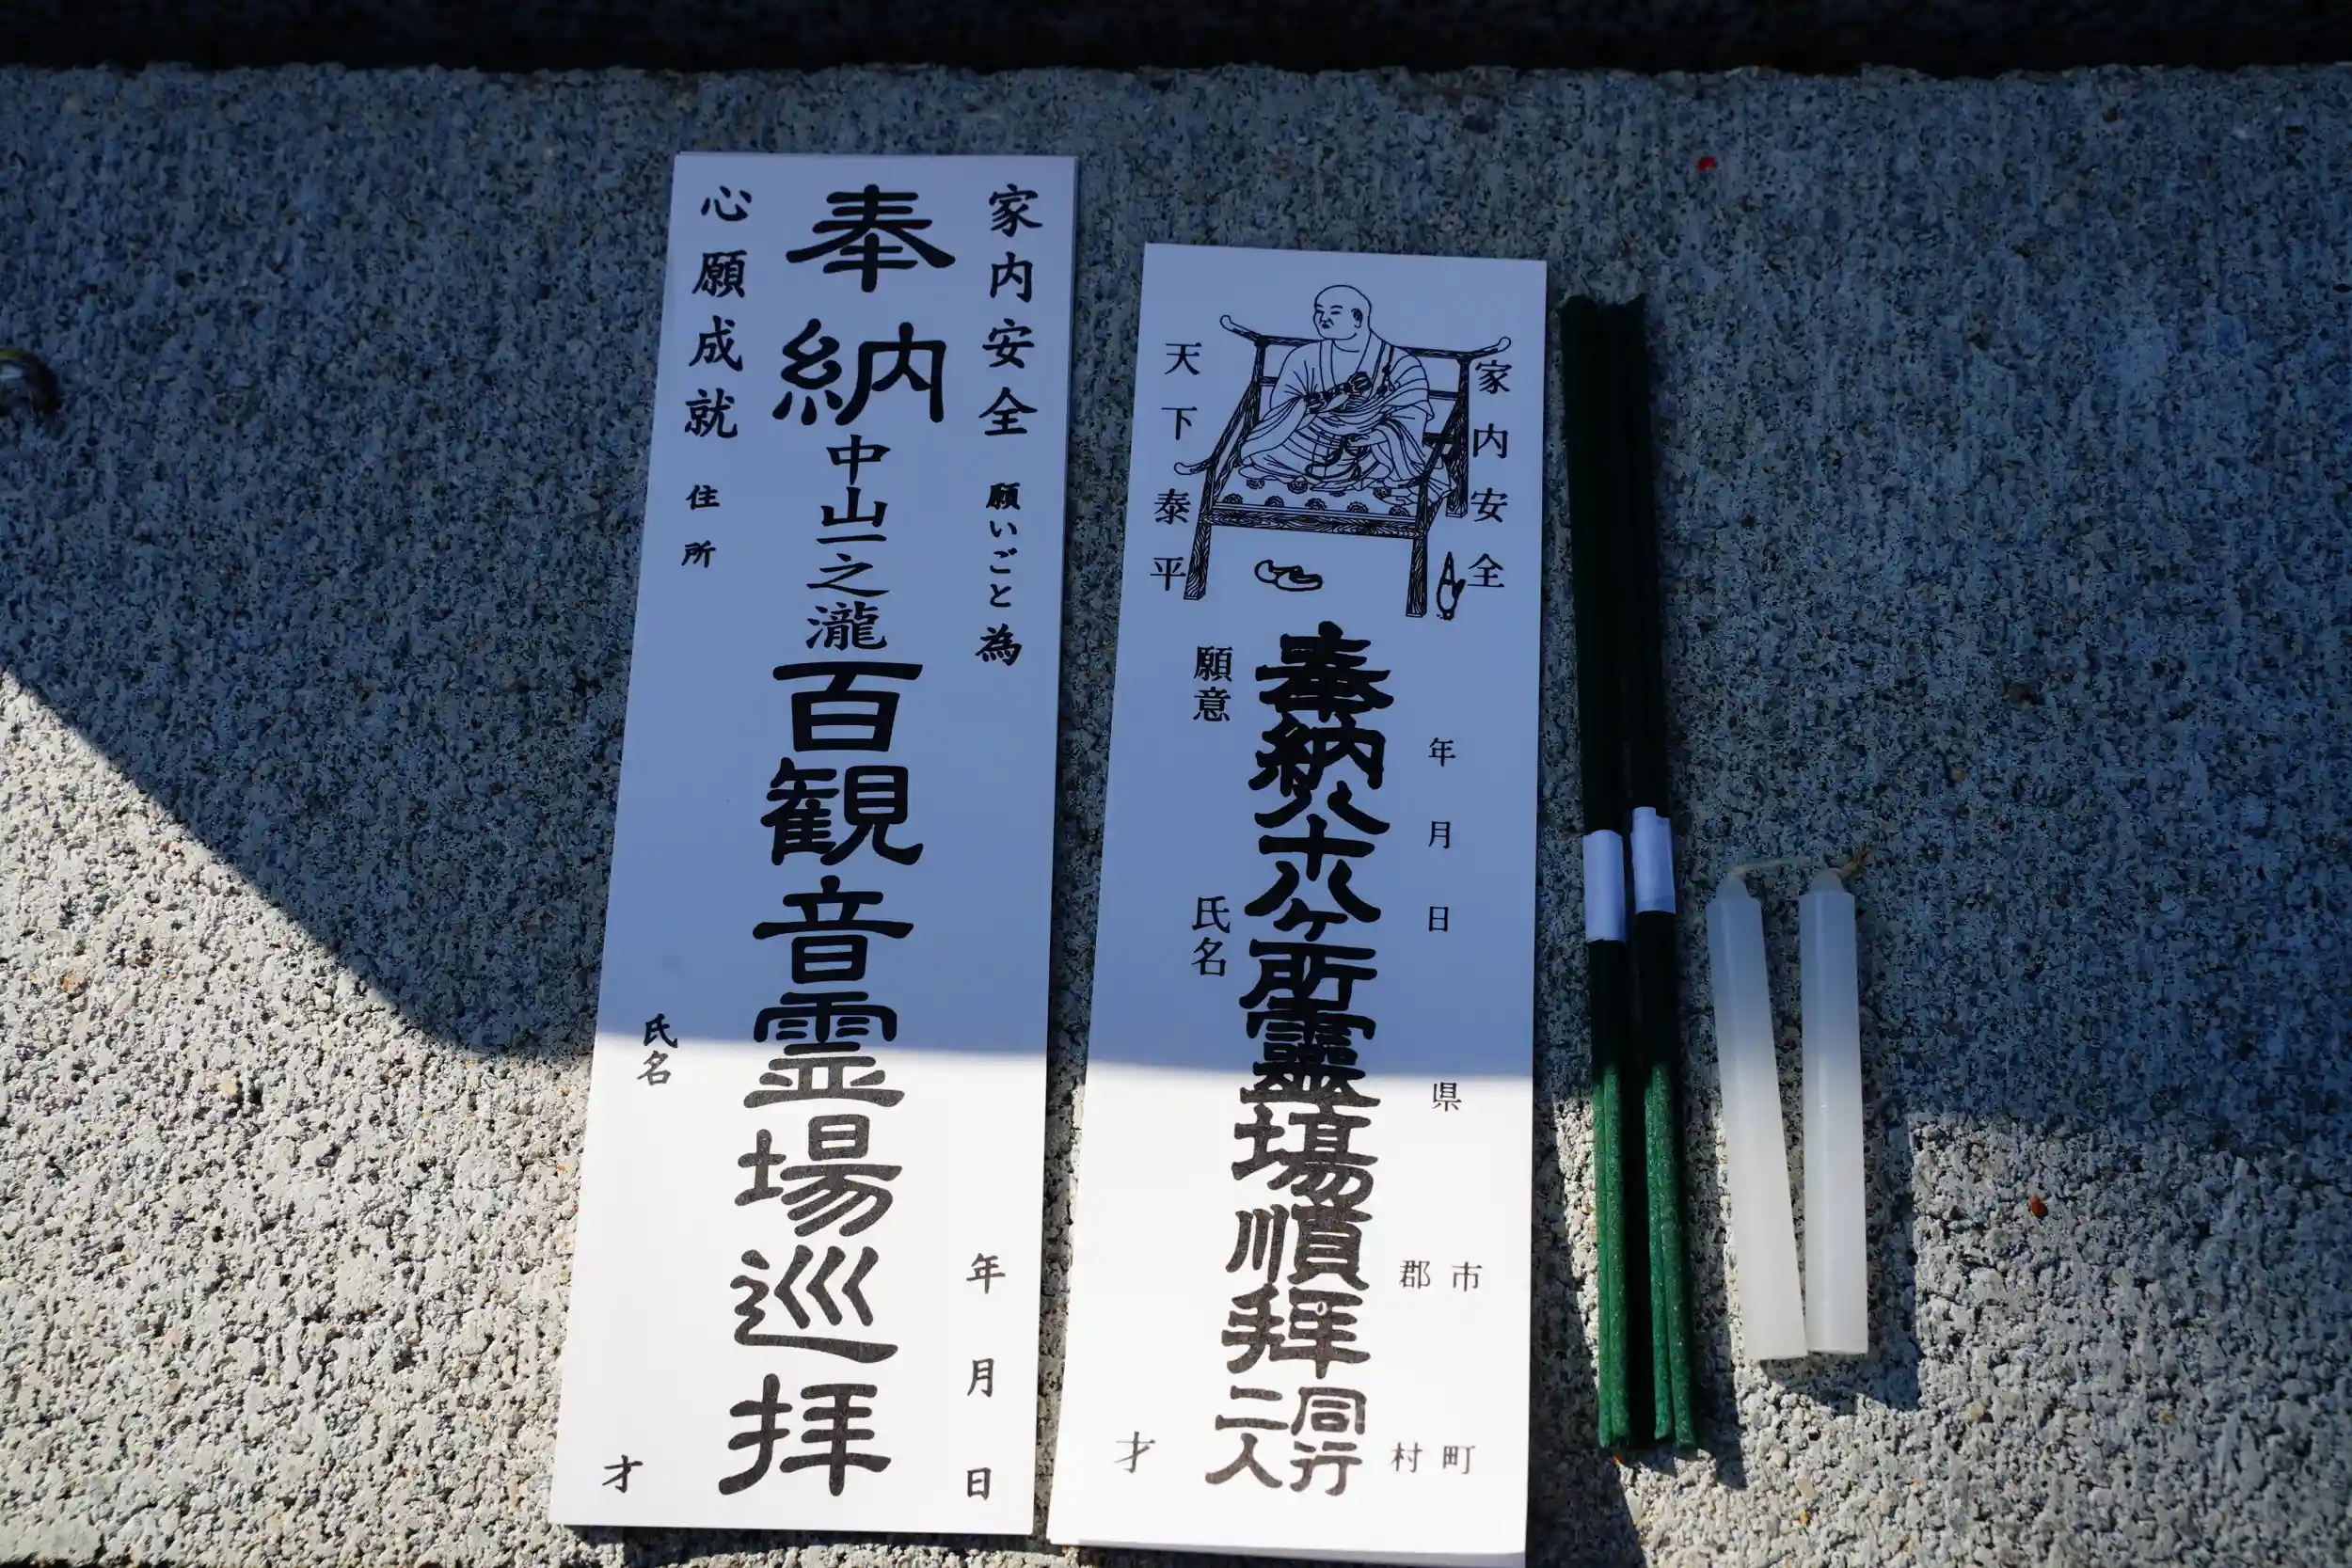 家内安全 願いごと為
年 月 日
奉納 中山一之瀧 百観音霊場巡拝
心願成就 住所
氏名
才
家内安全
天下泰平
年 月 日
県
市 郡
町 村
奉納八十八ヶ所靈場順拝 同行二人
願意
氏名
才